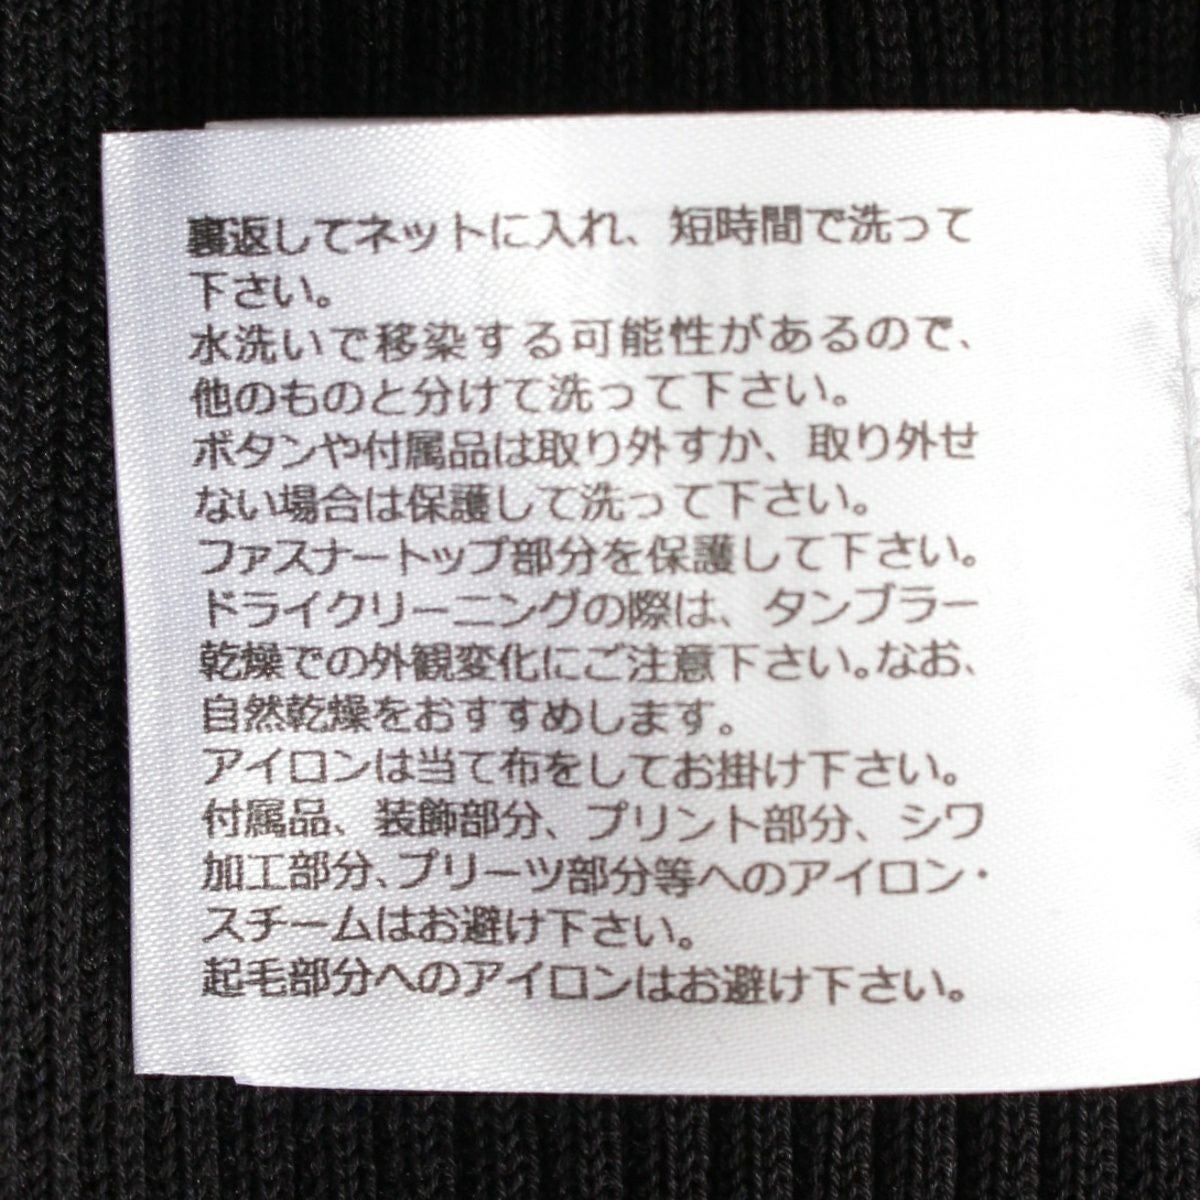 裏返してネットに入れ、短時間で洗って
下さい。
水洗いで移染する可能性があるので、
他のものと分けて洗って下さい。
ボタンや付属品は取り外すか、取り外せ
ない場合は保護して洗って下さい。
ファスナートップ部分を保護して下さい。
ドライクリーニングの際は、タンブラー
乾燥での外観変化にご注意下さい。なお、
自然乾燥をおすすめします。
アイロンは当て布をしてお掛け下さい。
付属品、装飾部分、プリント部分、シワ
加工部分、プリーツ部分等へのアイロン・
スチームはお避け下さい。
起毛部分へのアイロンはお避け下さい。